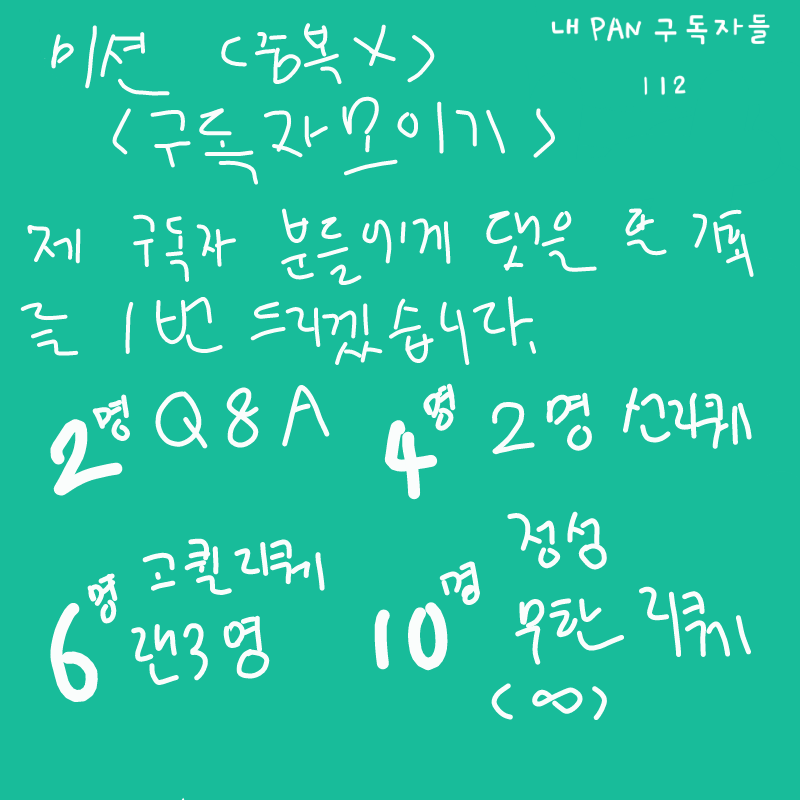 내 PAN 구독자들
112
미션 <중복 X>
<구독자모이기>
제 구독자 분들에게 댓을 단 기회
를 1번 드리겠습니다.
2명 Q&A
4명 2명 선리퀘
6명 고퀄리퀘
랜3명
10명 정성
무탄 리퀘
(∞)